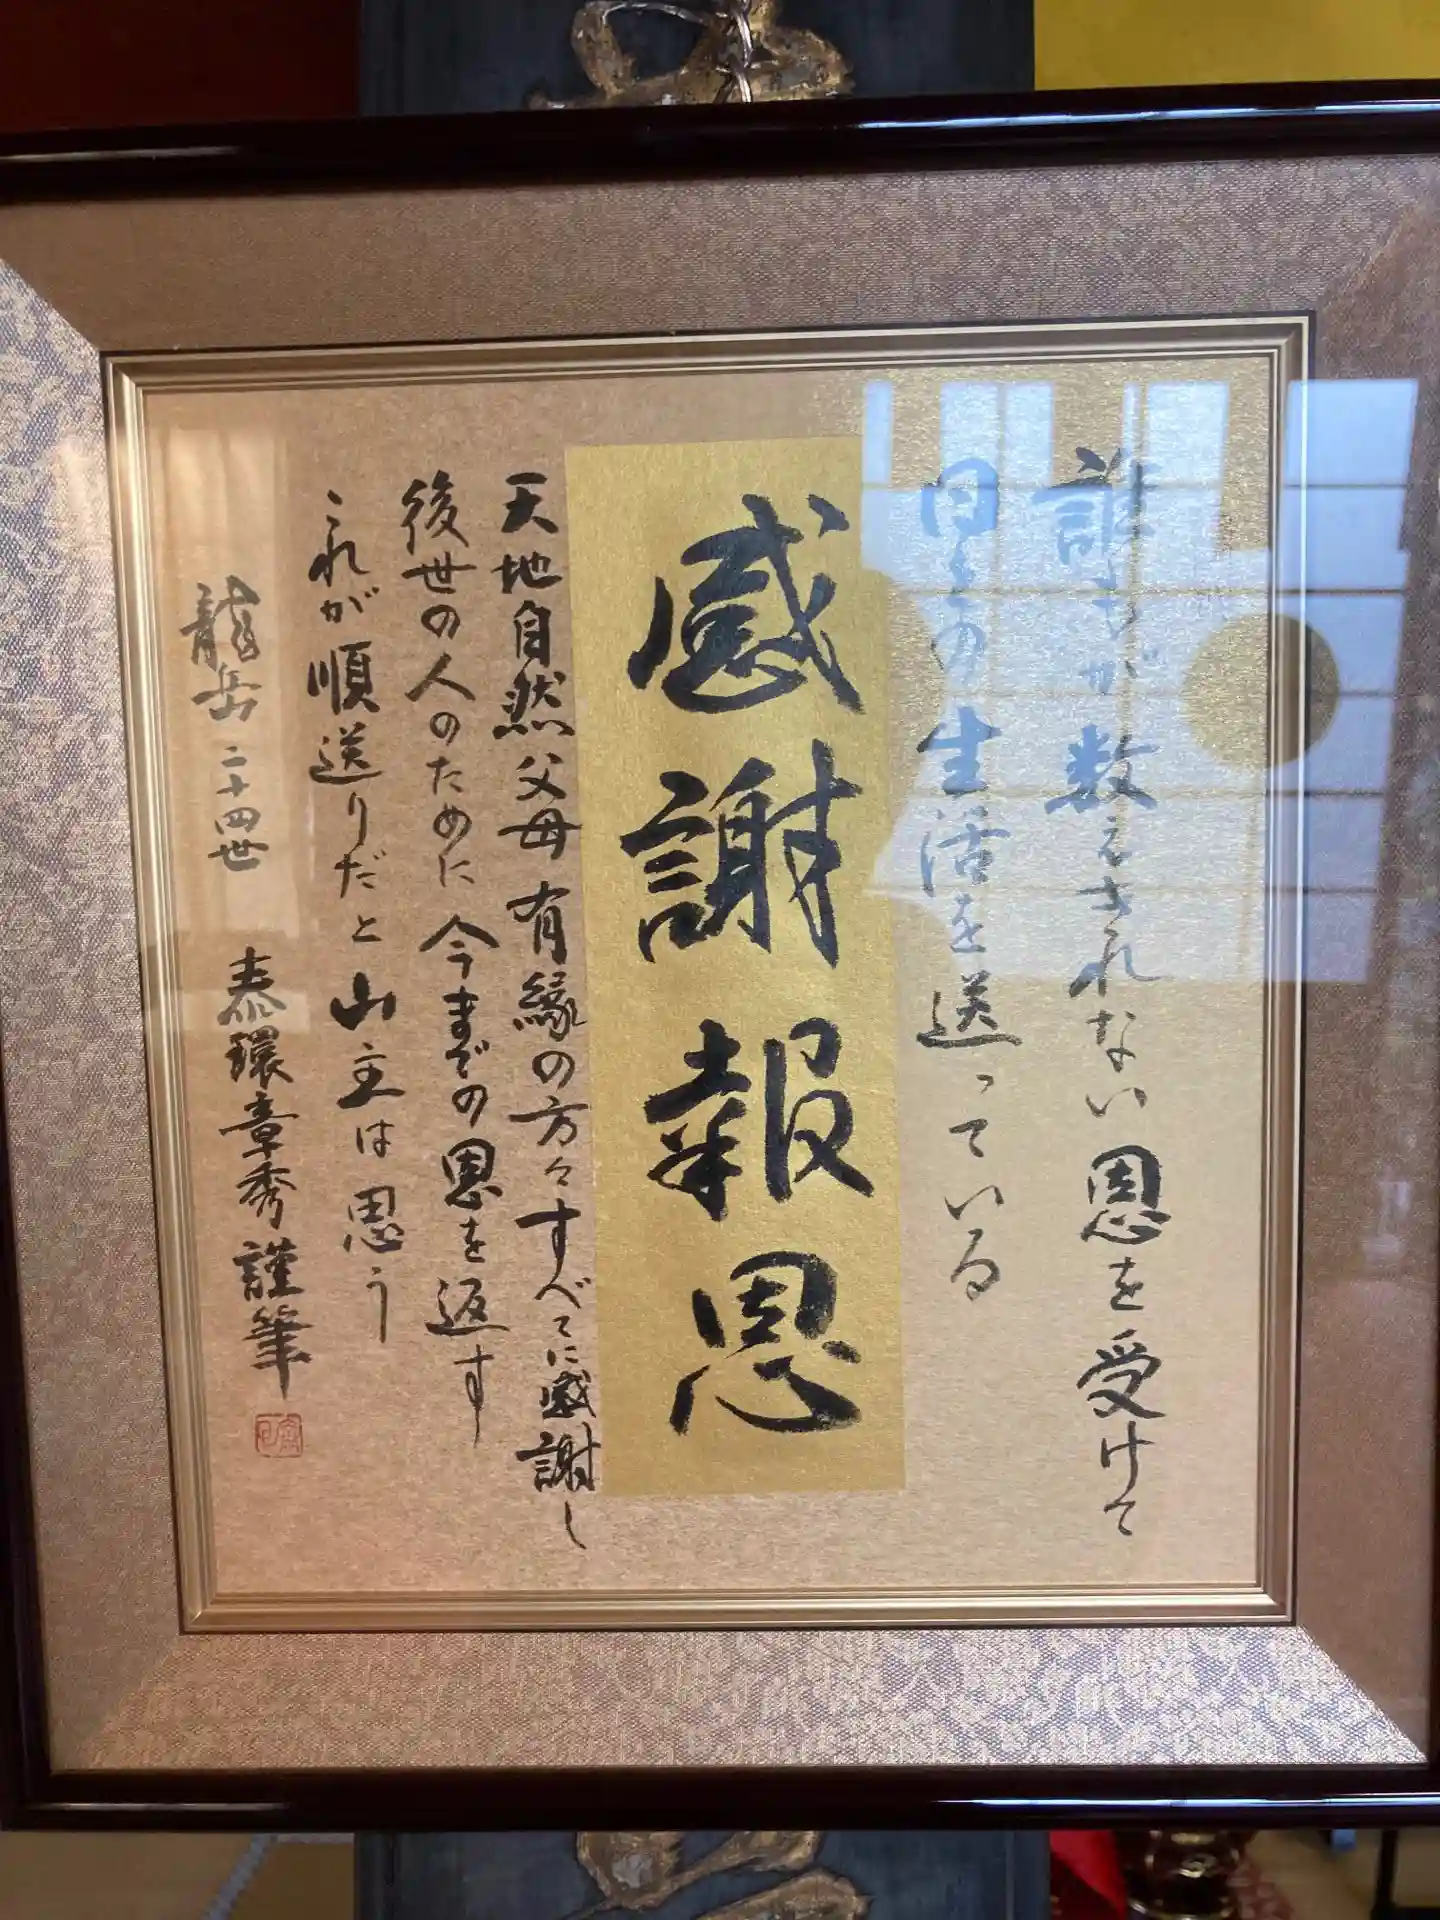 誰もが数えきれない恩を受けて
日々の生活を送っている
感謝報恩
天地自然父母有縁の方々すべてに感謝し
後世の人のために今までの恩を返す
これが順送りだと山主は思う
龍岳二十四世 泰環章秀謹筆